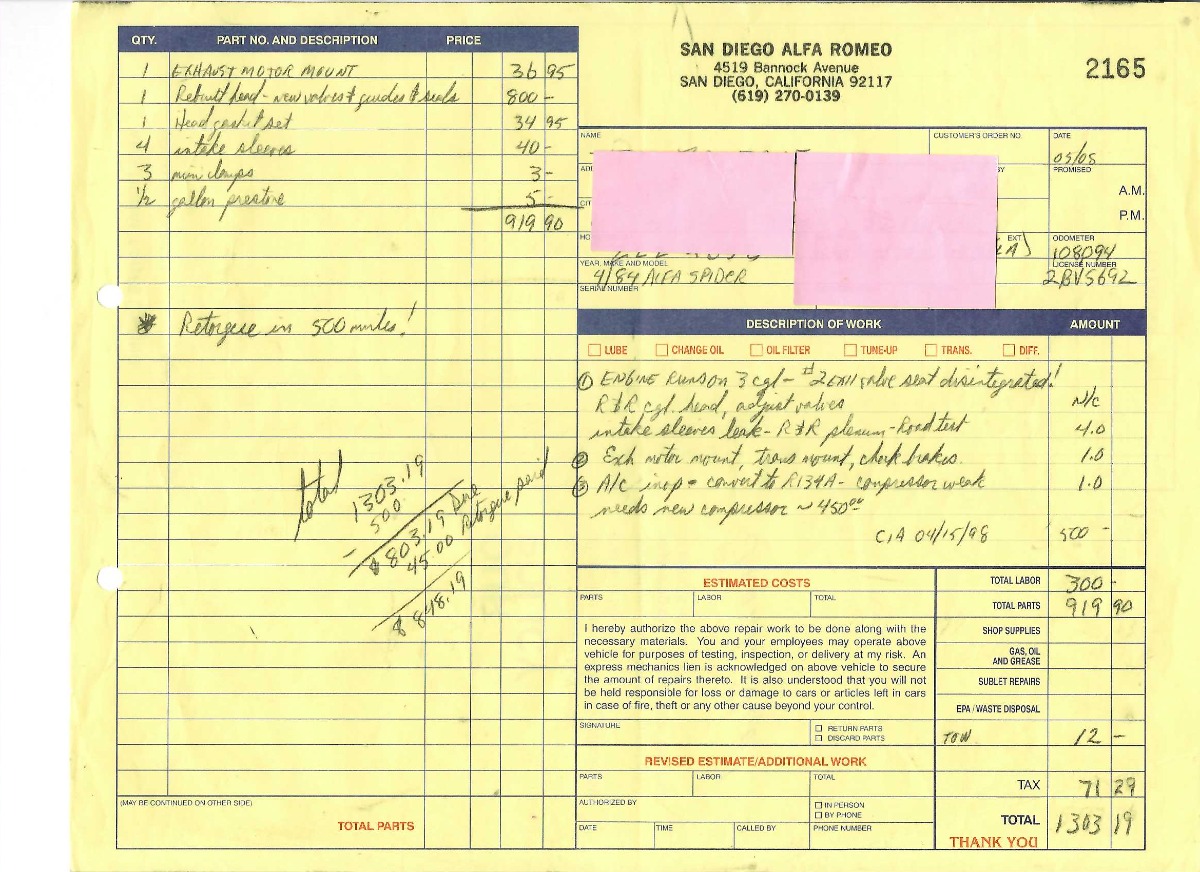 QTY. PART NO. AND DESCRIPTION PRICE
1 EXHAUST MOTOR MOUNT 36 95
1 Rebuilt head - new valves & guides & seals 800 -
1 Head gasket set 34 95
4 intake sleeves 40 -
3 mini clamps 3 -
1/2 gallon prestone 5 -
919 90
Retorque in 500 miles!
total 1303.19
- 500
$ 803.19 Due
45.00 Retorque paid
$ 848.19
(MAY BE CONTINUED ON OTHER SIDE)
TOTAL PARTS
SAN DIEGO ALFA ROMEO
4519 Bannock Avenue
SAN DIEGO, CALIFORNIA 92117
(619) 270-0139
2165
NAME
CUSTOMER'S ORDER NO.
DATE
05/05
PROMISED
A.M.
P.M.
EXT.
ODOMETER
108094
YEAR, MAKE AND MODEL
4/84 ALFA SPIDER
LICENSE NUMBER
2BVS692
SERIAL NUMBER
DESCRIPTION OF WORK AMOUNT
LUBE CHANGE OIL OIL FILTER TUNE-UP TRANS. DIFF.
① ENGINE RUNS ON 3 cyl - #2 EXH valve seat disintegrated!
R&R cyl. head, adjust valves N/C
intake sleeves leak - R&R plenum - Road test 4.0
② Exh motor mount, trans mount, check brakes. 1.0
③ A/C inop - convert to R134A - compressor weak 1.0
needs new compressor ~ 450.00
C/A 04/15/98 500 -
ESTIMATED COSTS
PARTS LABOR TOTAL
I hereby authorize the above repair work to be done along with the
necessary materials. You and your employees may operate above
vehicle for purposes of testing, inspection, or delivery at my risk. An
express mechanics lien is acknowledged on above vehicle to secure
the amount of repairs thereto. It is also understood that you will not
be held responsible for loss or damage to cars or articles left in cars
in case of fire, theft or any other cause beyond your control.
SIGNATURE
RETURN PARTS
DISCARD PARTS
REVISED ESTIMATE/ADDITIONAL WORK
PARTS LABOR TOTAL
AUTHORIZED BY
IN PERSON
BY PHONE
DATE TIME CALLED BY PHONE NUMBER
TOTAL LABOR 300 -
TOTAL PARTS 919 90
SHOP SUPPLIES
GAS, OIL
AND GREASE
SUBLET REPAIRS
EPA / WASTE DISPOSAL
TOW 12 -
TAX 71 29
TOTAL 1303 19
THANK YOU